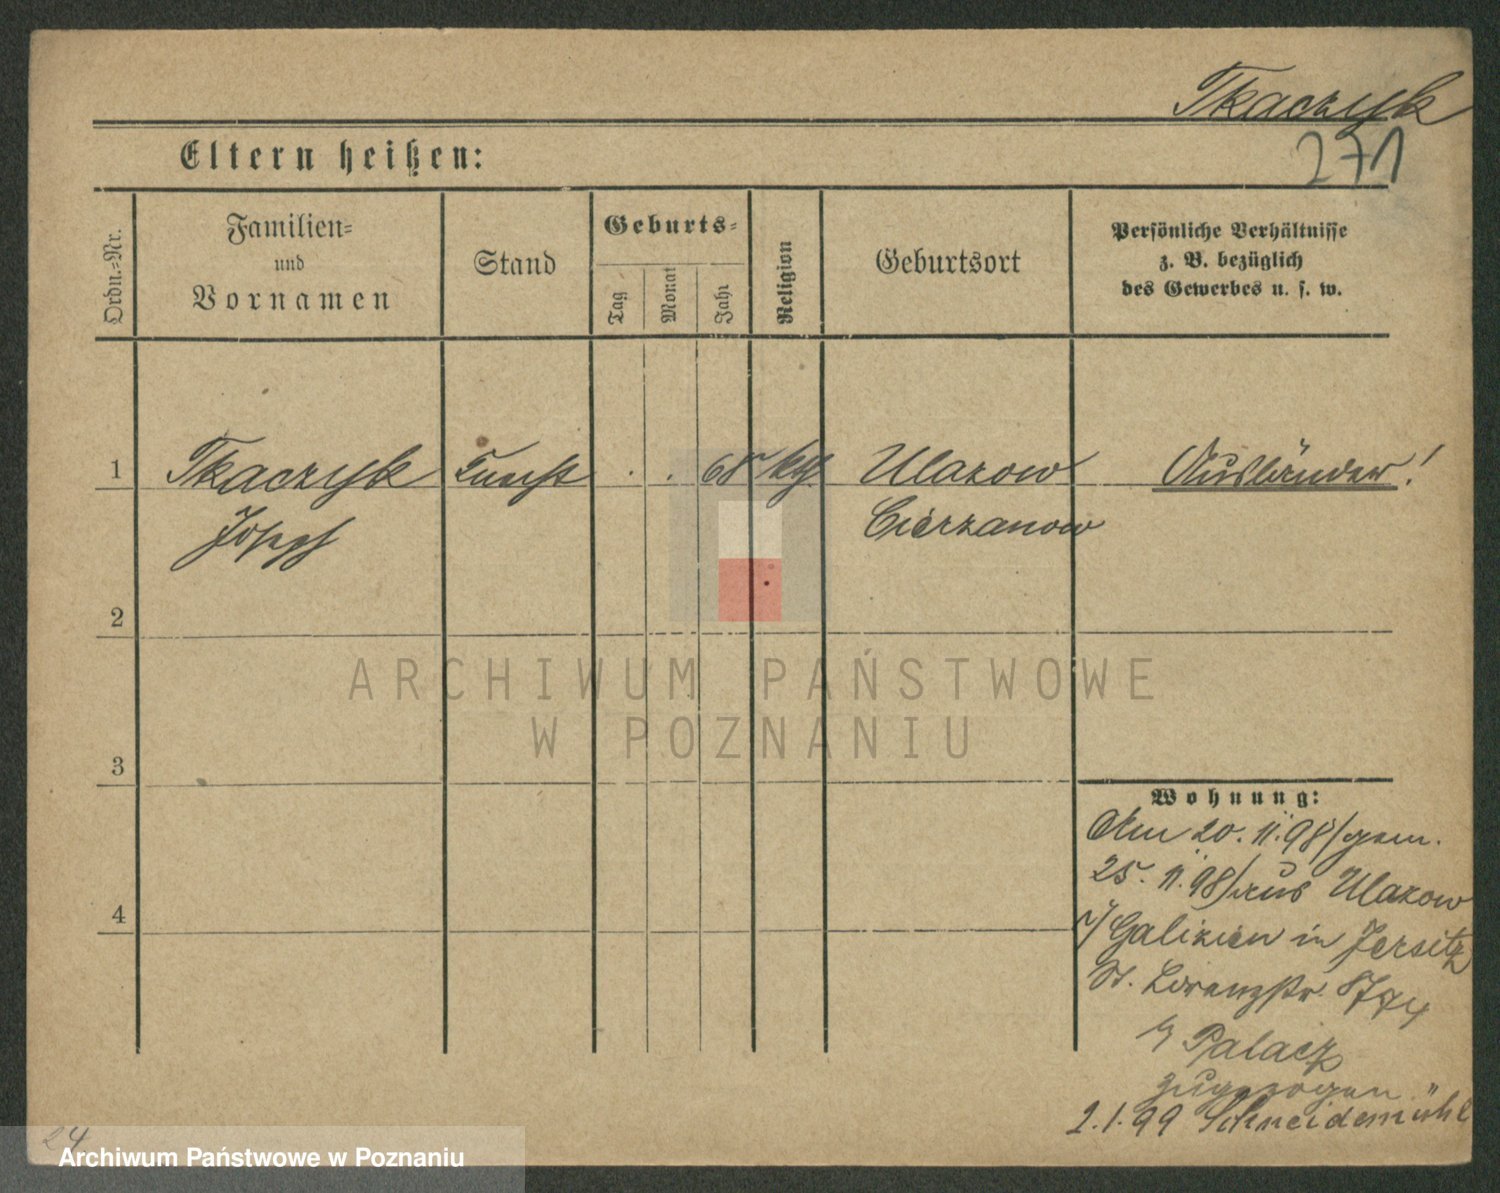 Tkaczyk
271
Eltern heißen:
Ordn.=Nr.
Familien=
und
Vornamen
Stand
Geburts=
Tag
Monat
Jahr
Religion
Geburtsort
Persönliche Verhältnisse
z. B. bezüglich
des Gewerbes u. s. w.
1
Tkaczyk
. . 68 kth.
Ulazow
Ausländer!
Josef
Cierzanow
2
3
4
ARCHIWUM PAŃSTWOWE
W POZNANIU
Wohnung:
Am 20.11.98/gem.
25.11.98/aus Ulazow
Galizien in Jersitz
St. Lorenzstr.
Palacz
zugezogen
2.1.99 Schneidemühl
24
Archiwum Państwowe w Poznaniu